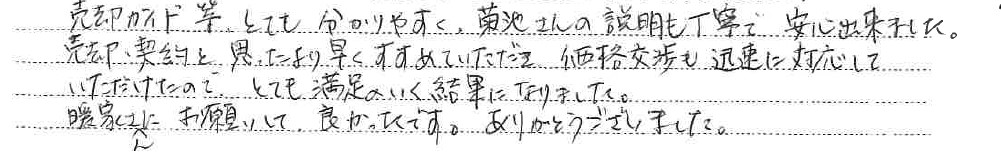 売却ガイド等、とても分かりやすく、菊池さんの説明も丁寧で安心出来ました。
売却、契約と思ったより早くすすめていただき価格交渉も迅速に対応して
いただけたので、とても満足のいく結果になりました。
暖家さんにお願いして、良かったです。ありがとうございました。